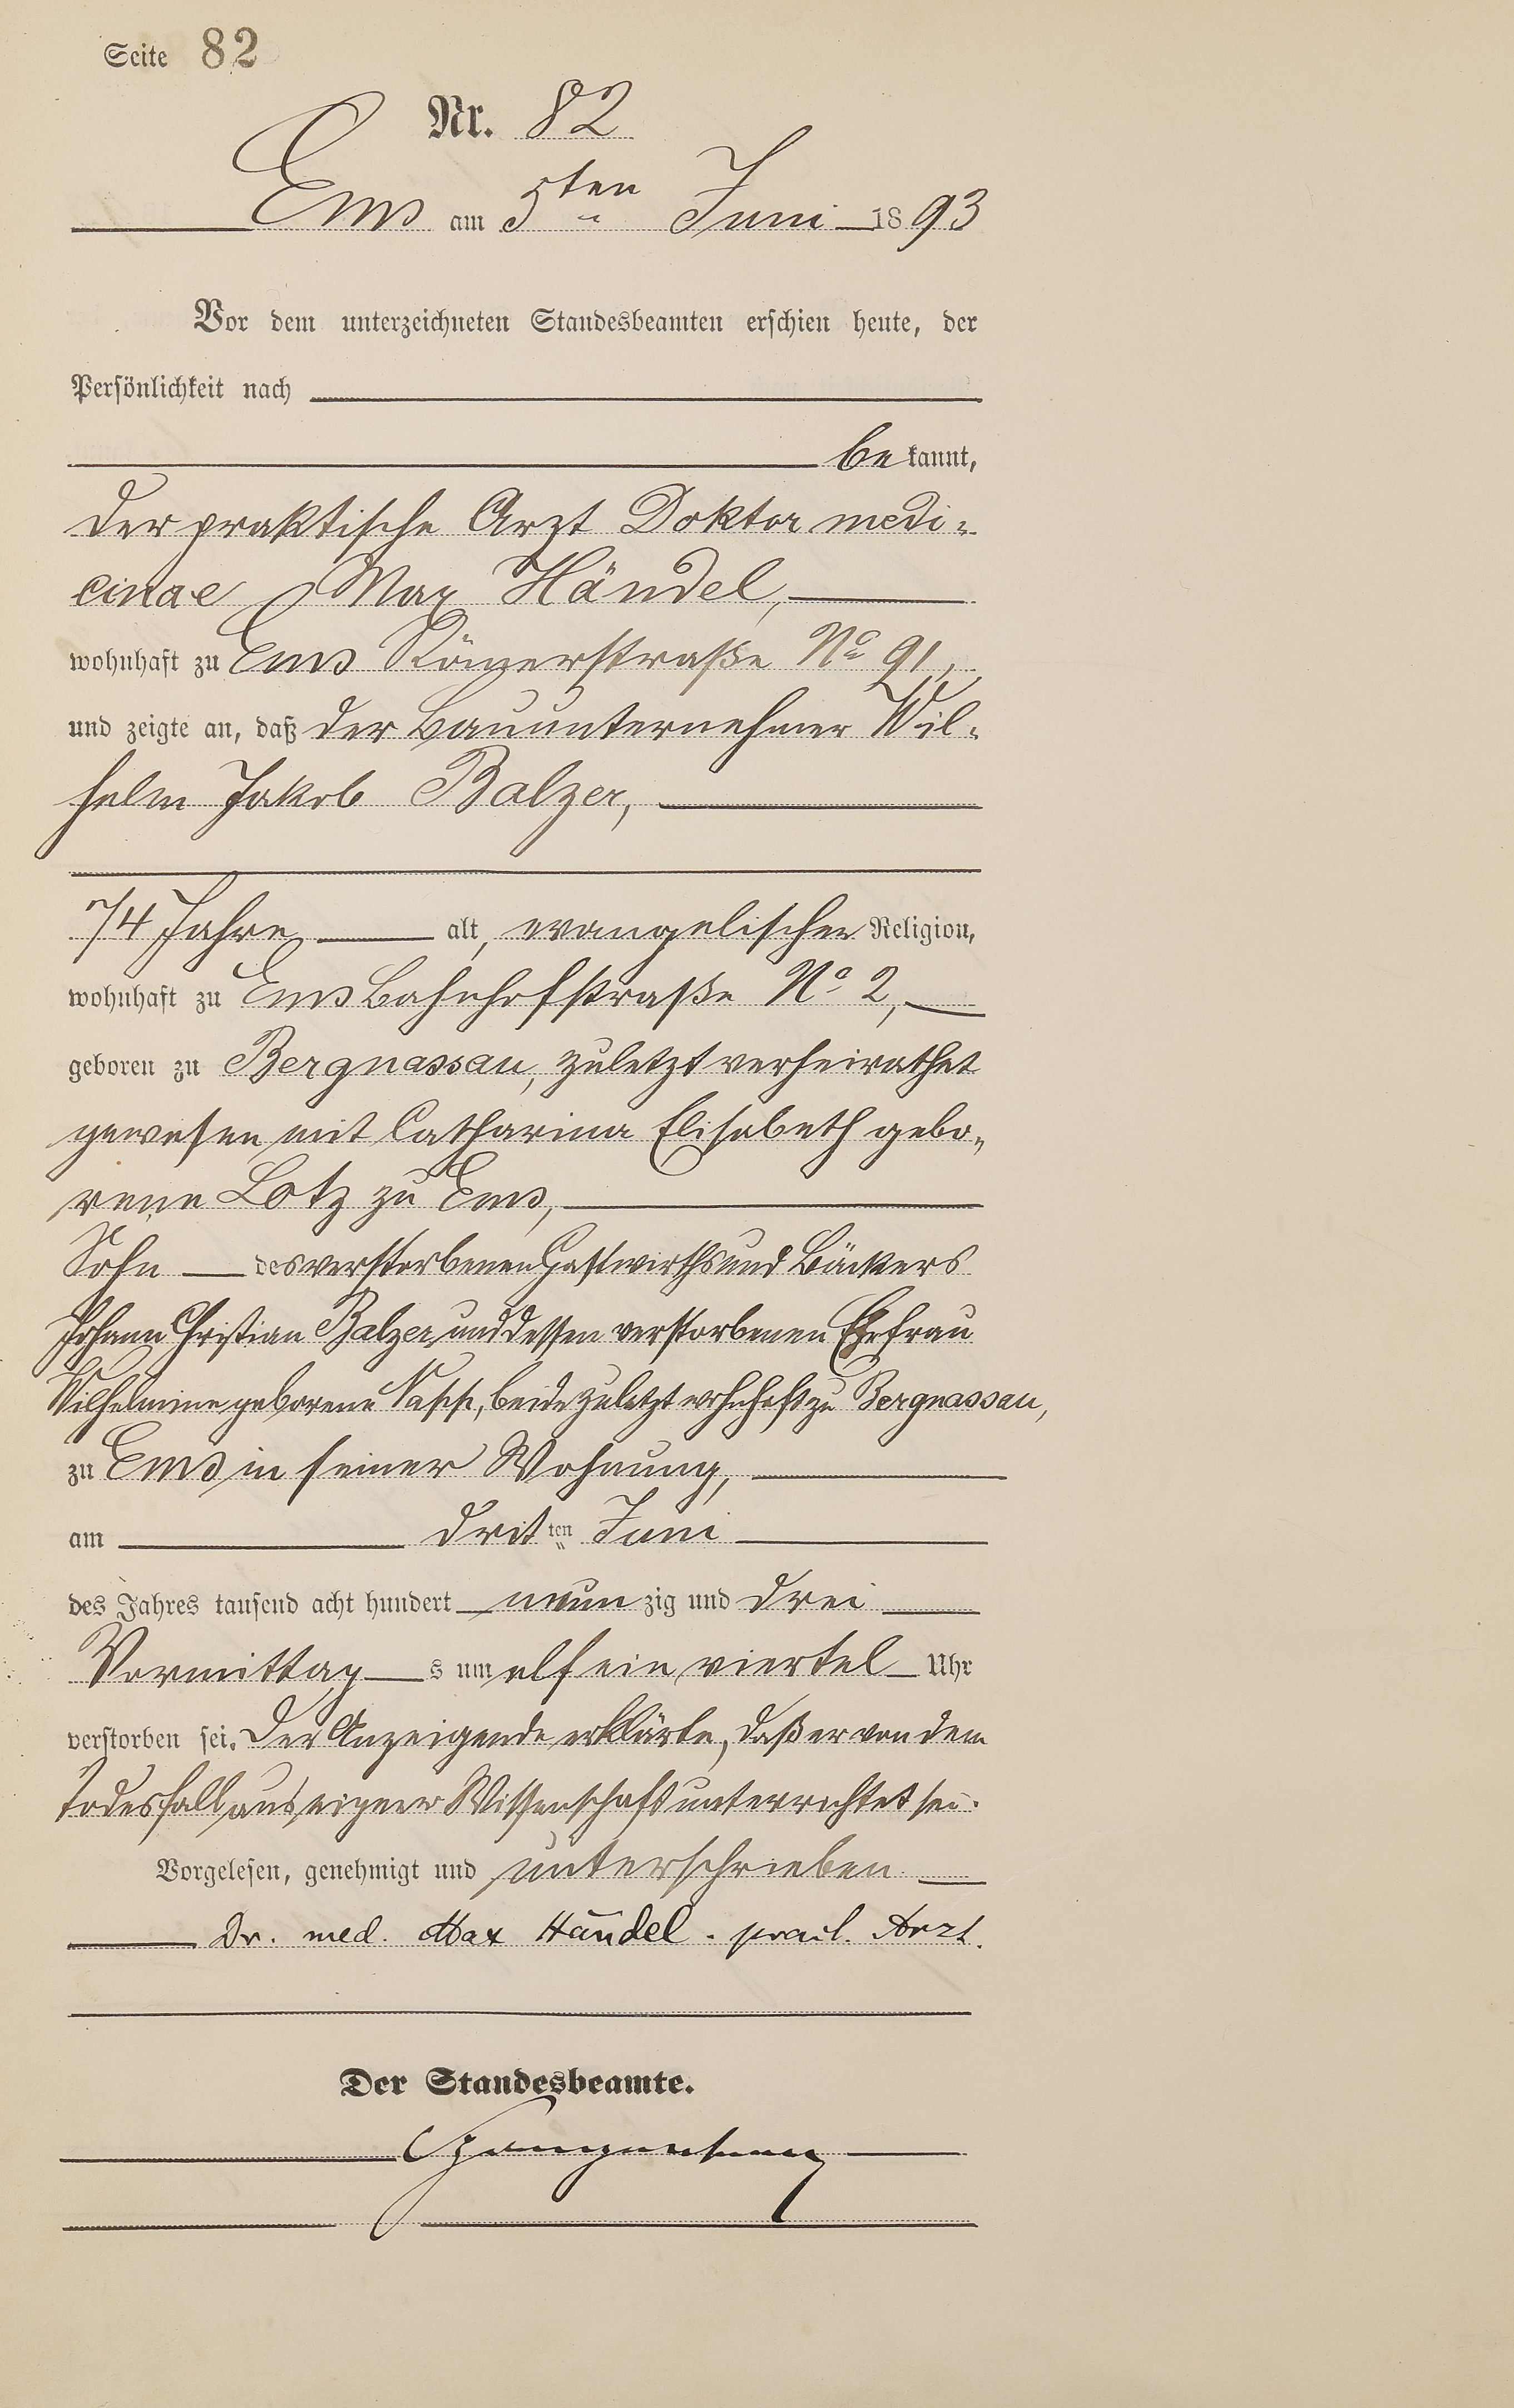 Seite 82
Nr. 82
Ems am 5ten Juni 1893
Vor dem unterzeichneten Standesbeamten erschien heute, der
Persönlichkeit nach
bekannt,
der praktische Arzt Doktor medi-
cinae Max Händel,
wohnhaft zu Ems Römerstraße No 91,
und zeigte an, daß der Bauunternehmer Wil-
helm Jakob Balzer,
74 Jahre alt, evangelischer Religion,
wohnhaft zu Ems Bahnhofstraße No 2,
geboren zu Bergnassau, zuletzt verheirathet
gewesen mit Catharina Elisabeth gebo-
rene Lotz zu Ems,
Sohn des verstorbenen Gastwirths und Bäckers
Johann Christian Balzer und dessen verstorbenen Ehefrau
Wilhelmine geborene, beide zuletzt wohnhaft zu Bergnassau,
zu Ems in seiner Wohnung,
am dritten Juni
des Jahres tausend acht hundert neunzig und drei
Vormittags um elf ein viertel Uhr
verstorben sei. Der Anzeigende erklärte, daß er von dem
Todesfall aus eigner Wissenschaft unterrichtet sei.
Vorgelesen, genehmigt und unterschrieben
Dr. med. Max Händel. Arzt.
Der Standesbeamte.